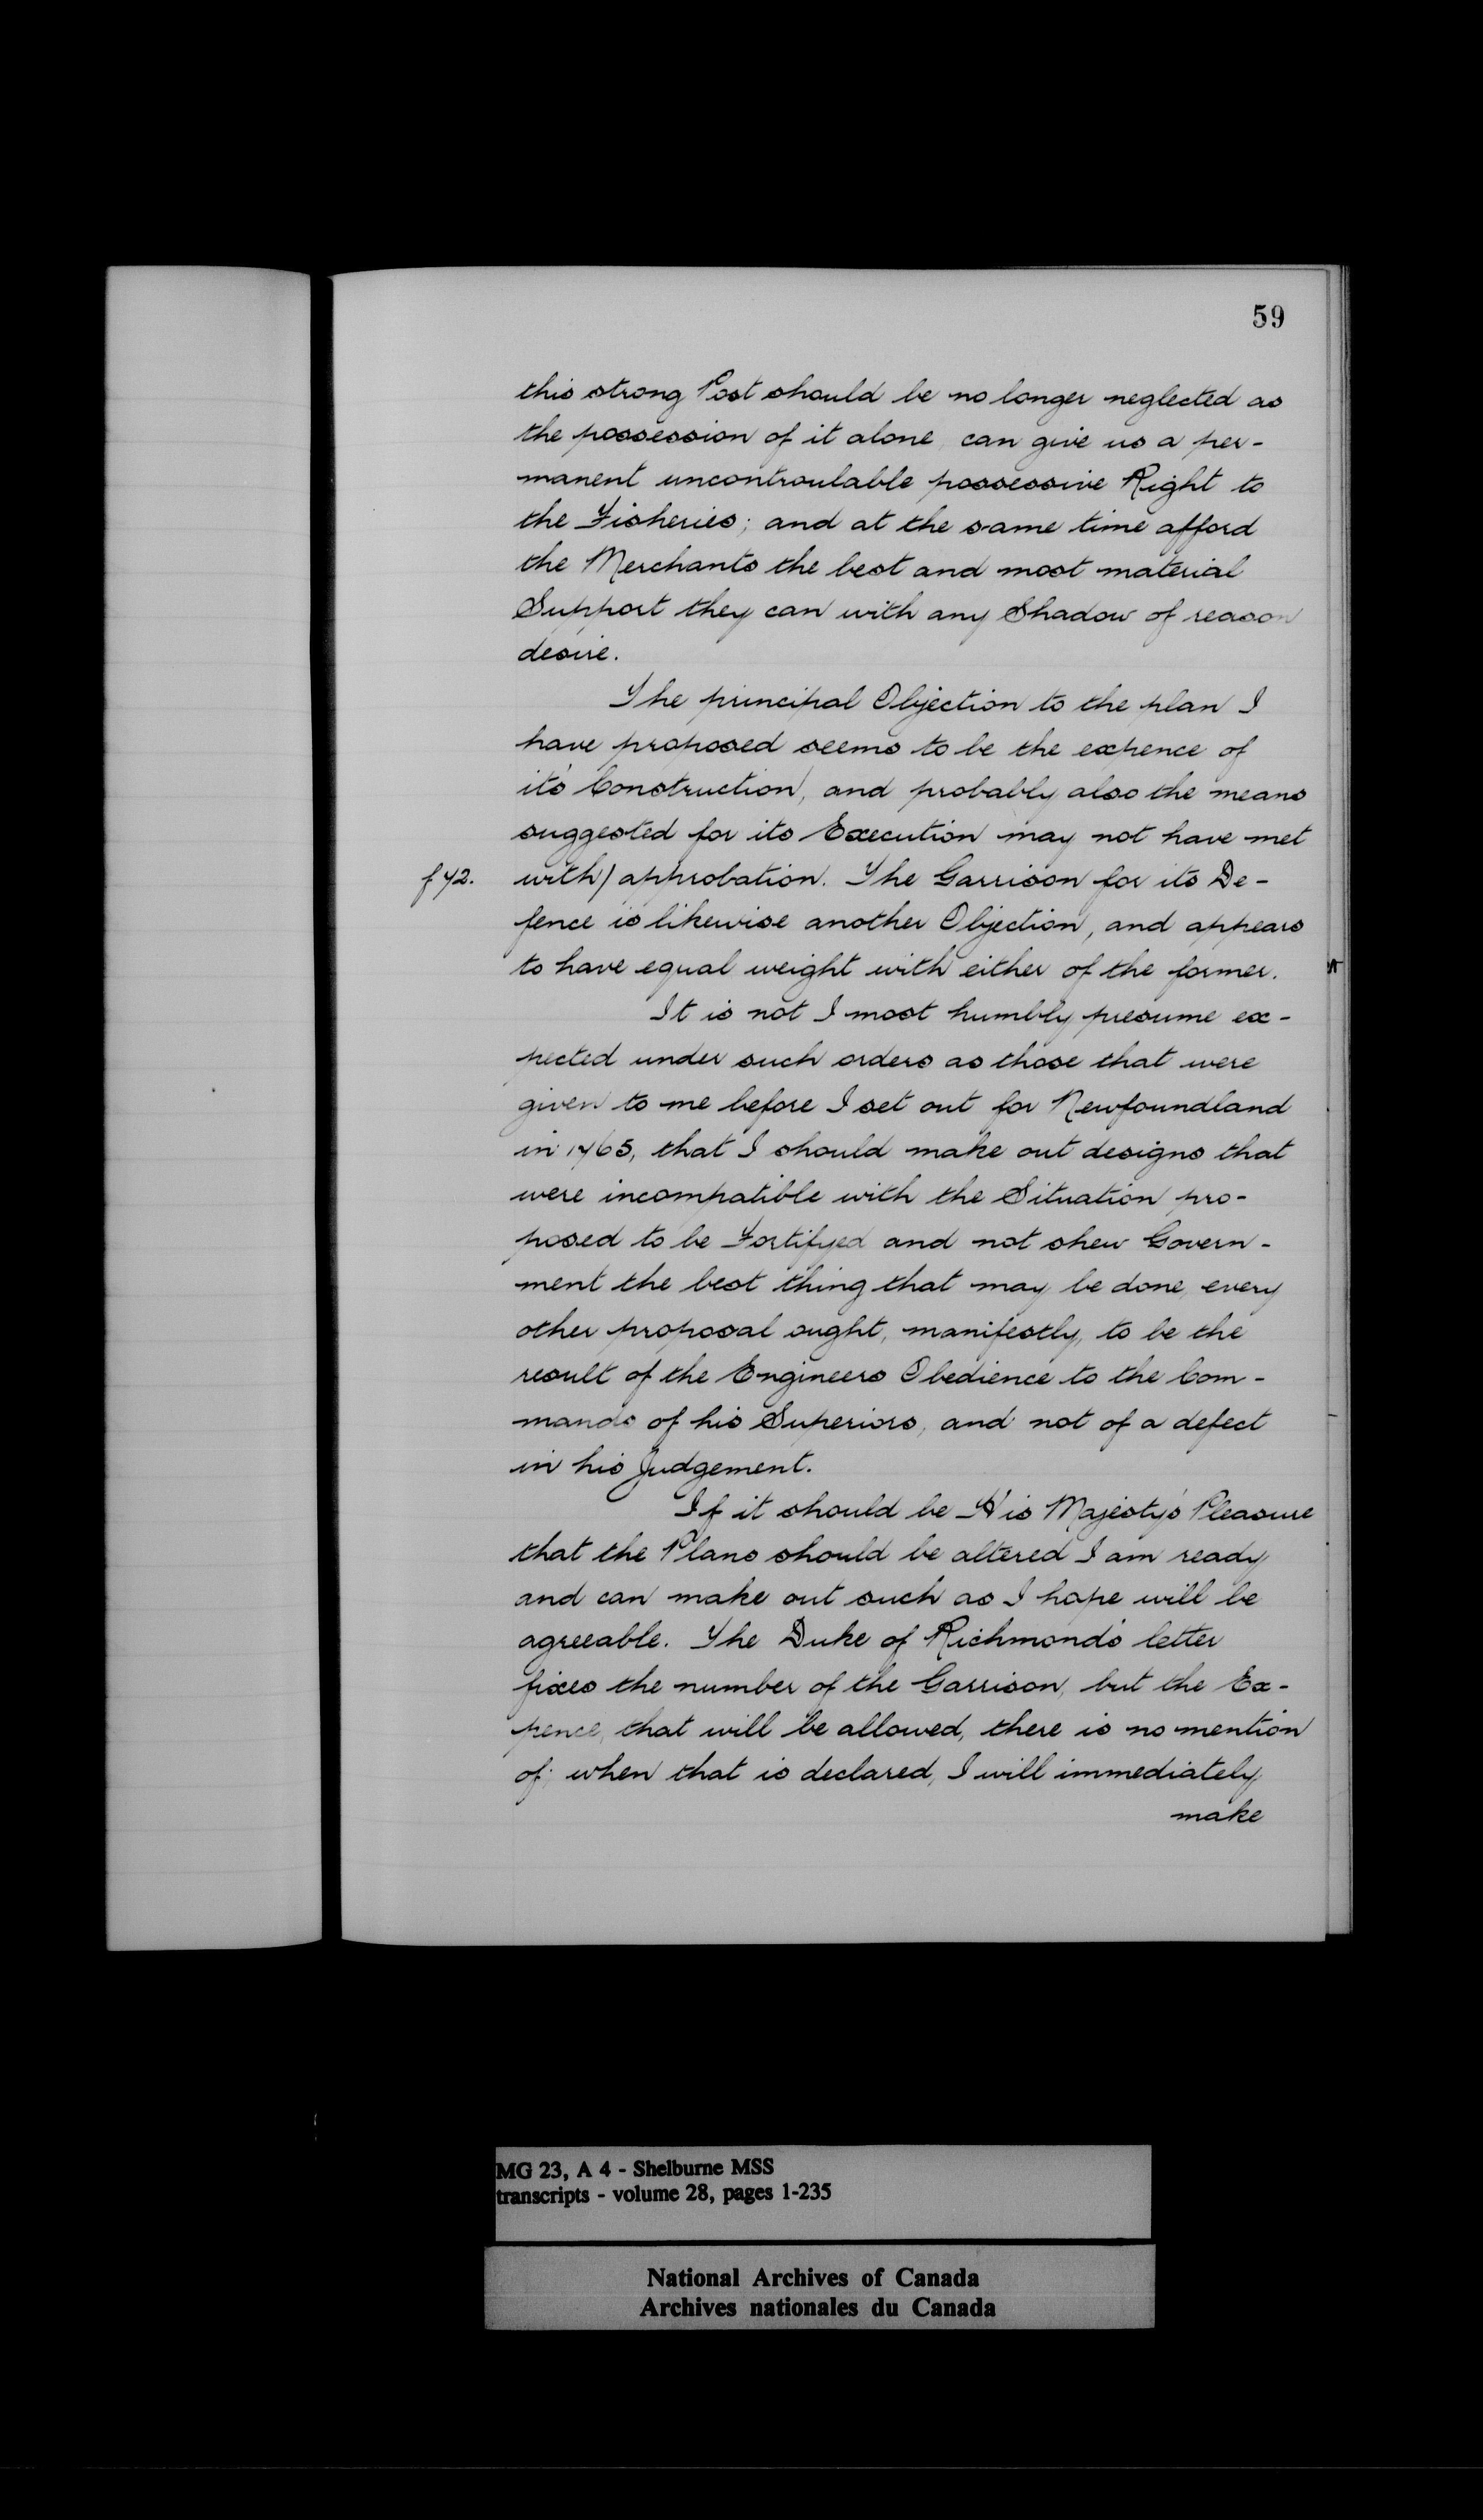 59
this strong Post should be no longer neglected as
the possession of it alone, can give us a per-
manent uncontroulable possessive Right to
the Fisheries; and at the same time afford
the Merchants the best and most material
Support they can with any Shadow of reason
desire.
The principal Objection to the plan I
have proposed seems to be the expence of
it's Construction, and probably also the means
suggested for its Execution may not have met
f 72. with/ approbation. The Garrison for its De-
fence is likewise another Objection, and appears
to have equal weight with either of the former.
It is not I most humbly presume ex-
pected under such orders as those that were
given to me before I set out for Newfoundland
in 1765, that I should make out designs that
were incompatible with the Situation pro-
posed to be Fortifyed and not shew Govern-
ment the best thing that may be done, every
other proposal ought, manifestly, to be the
result of the Engineers Obedience to the Com-
mands of his Superiors, and not of a defect
in his Judgement.
If it should be His Majesty's Pleasure
that the Plans should be altered I am ready
and can make out such as I hope will be
agreeable. The Duke of Richmond's letter
fixes the number of the Garrison, but the Ex-
pence, that will be allowed, there is no mention
of; when that is declared, I will immediately
make
MG 23, A 4 - Shelburne MSS
transcripts - volume 28, pages 1-235
National Archives of Canada
Archives nationales du Canada